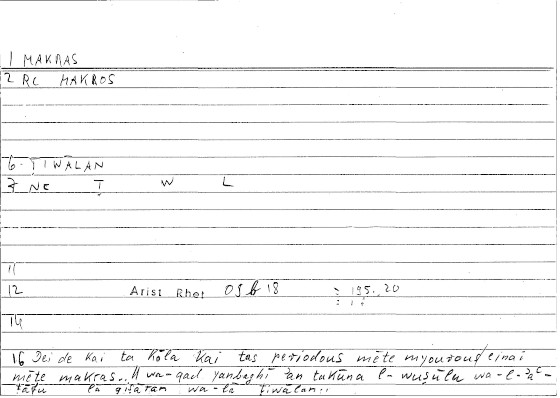 1 MAKRAS
2 RC MAKROS
6. ṬIWĀLAN
7 NC Ṭ W L
11
12 Arist Rhet 09b18 : 195.,20
14
16 Dei de kai ta kōla kai tas periodous mēte myourous einai
mēte makras..// wa-qad yanbaghī ʾan takūna l-wuṣūlu wa-l-ʾaʿ-
ṭāfu lā qiṣāran wa-lā ṭiwālan..